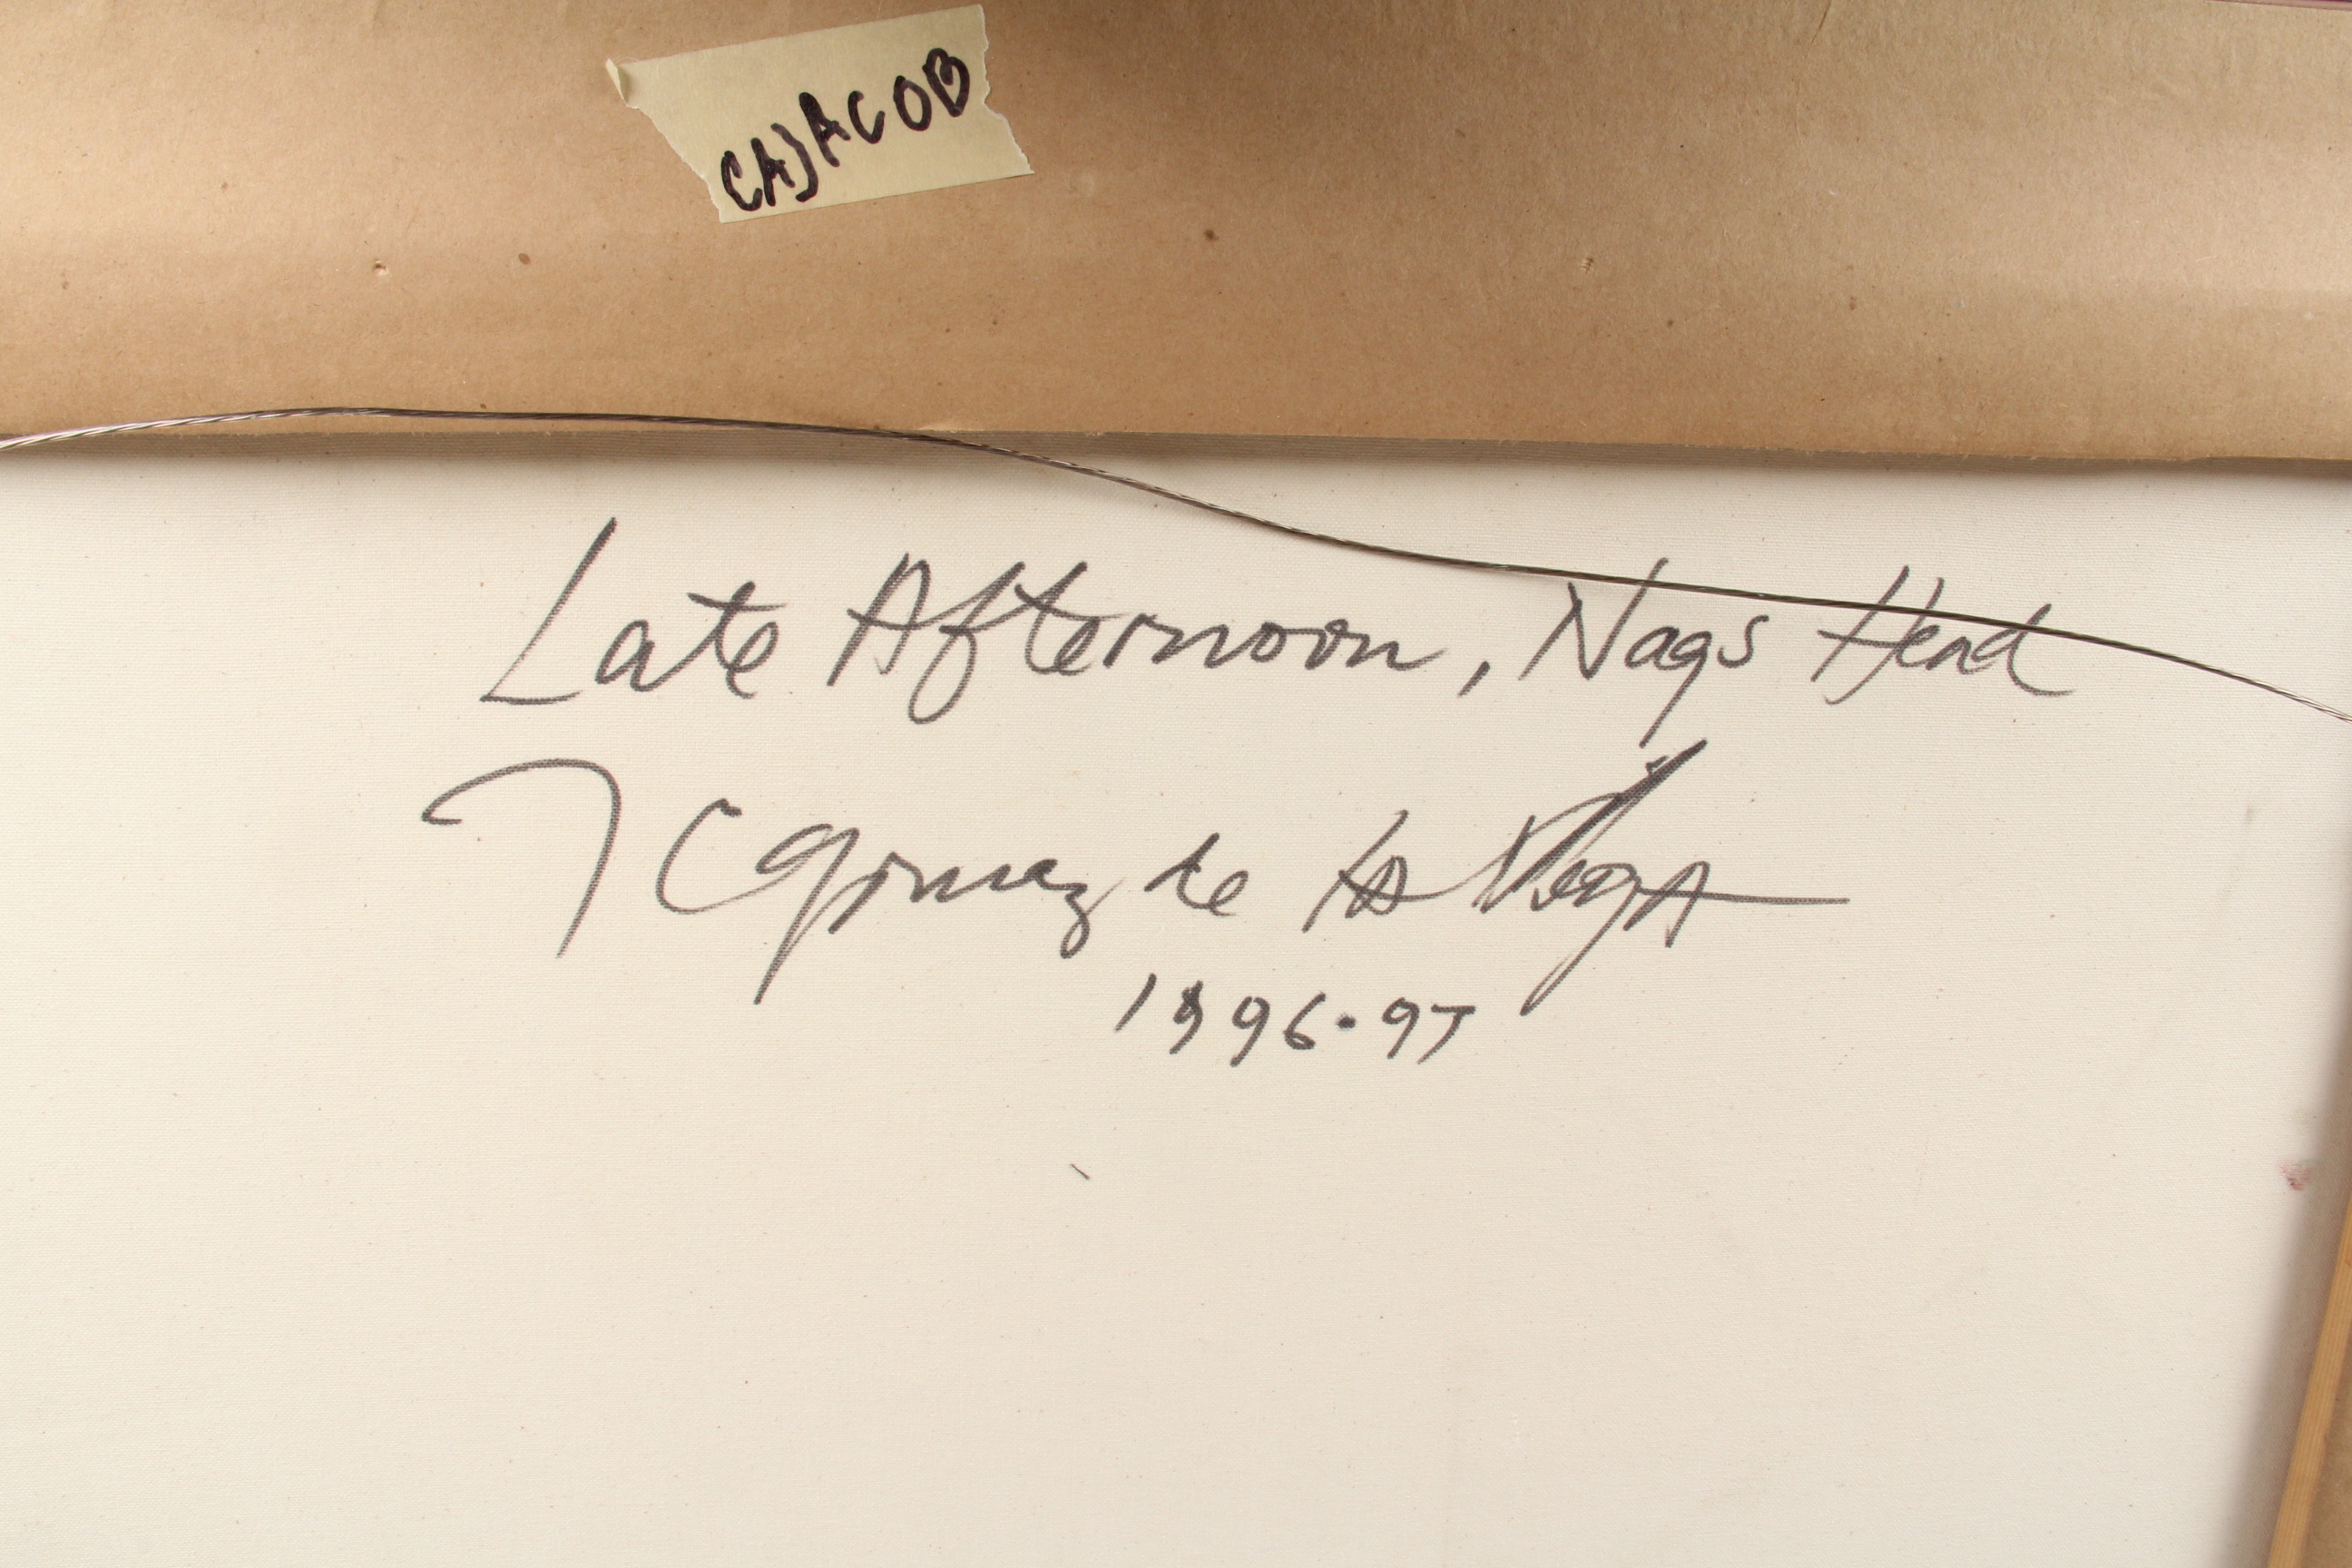 CAJACOB
Late Afternoon, Nags Head
JC Gimez de la Vega
1996·97